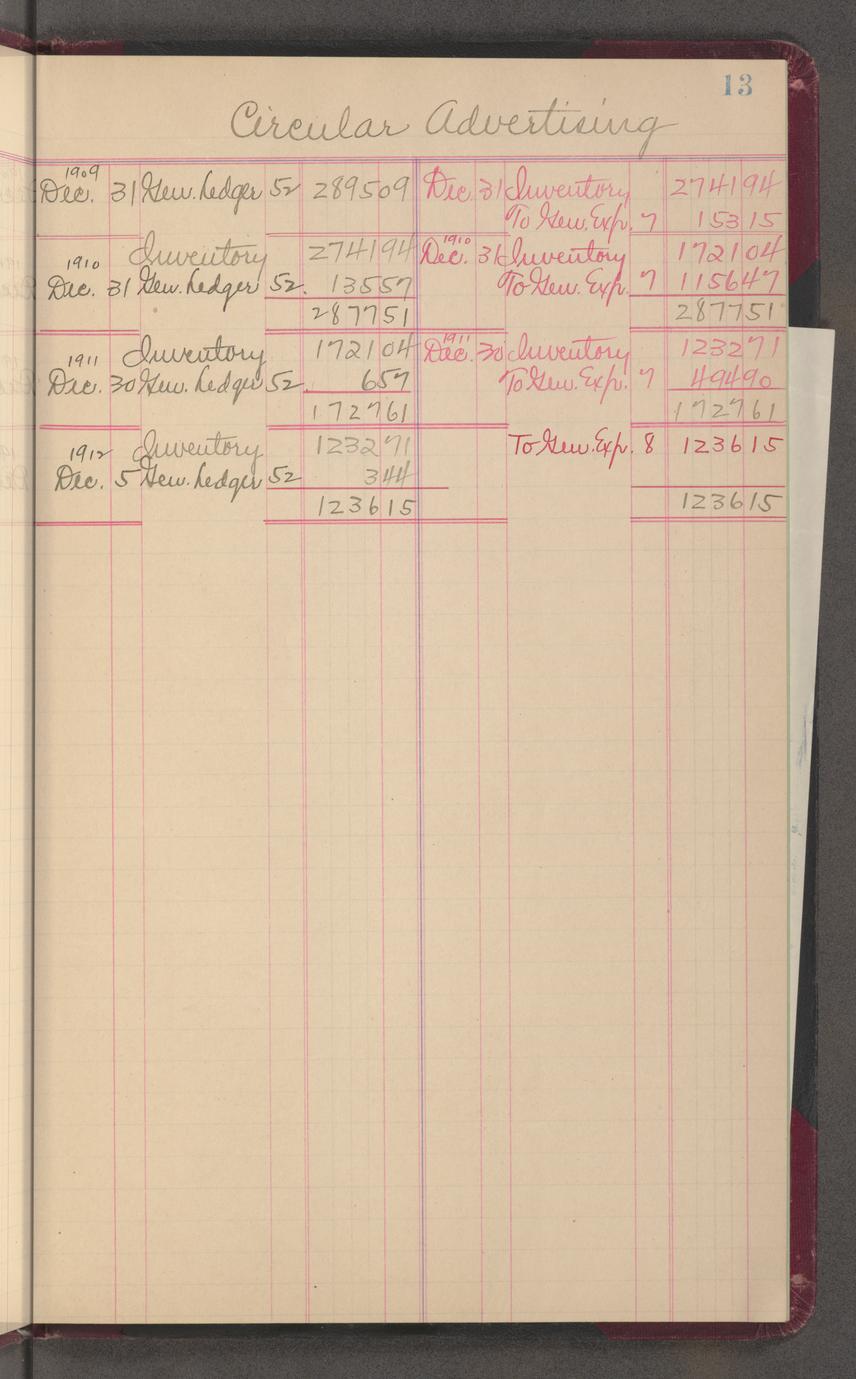 13
Circular Advertising
1909
Dec. 31 Gen. Ledger 52 289509 Dec. 31 Inventory 274194
To Gen. Exp. 7 15315
Inventory 274194 1910 Dec. 31 Inventory 172104
1910
Dec. 31 Gen. Ledger 52. 13557 To Gen. Exp. 7 115647
287751 287751
Inventory 172104 1911 Dec. 30 Inventory 123271
1911
Dec. 30 Gen. Ledger 52. 657 To Gen. Exp. 7 49490
172761 172761
1912 Inventory 123271 To Gen. Exp. 8 123615
Dec. 5 Gen. Ledger 52 344
123615 123615